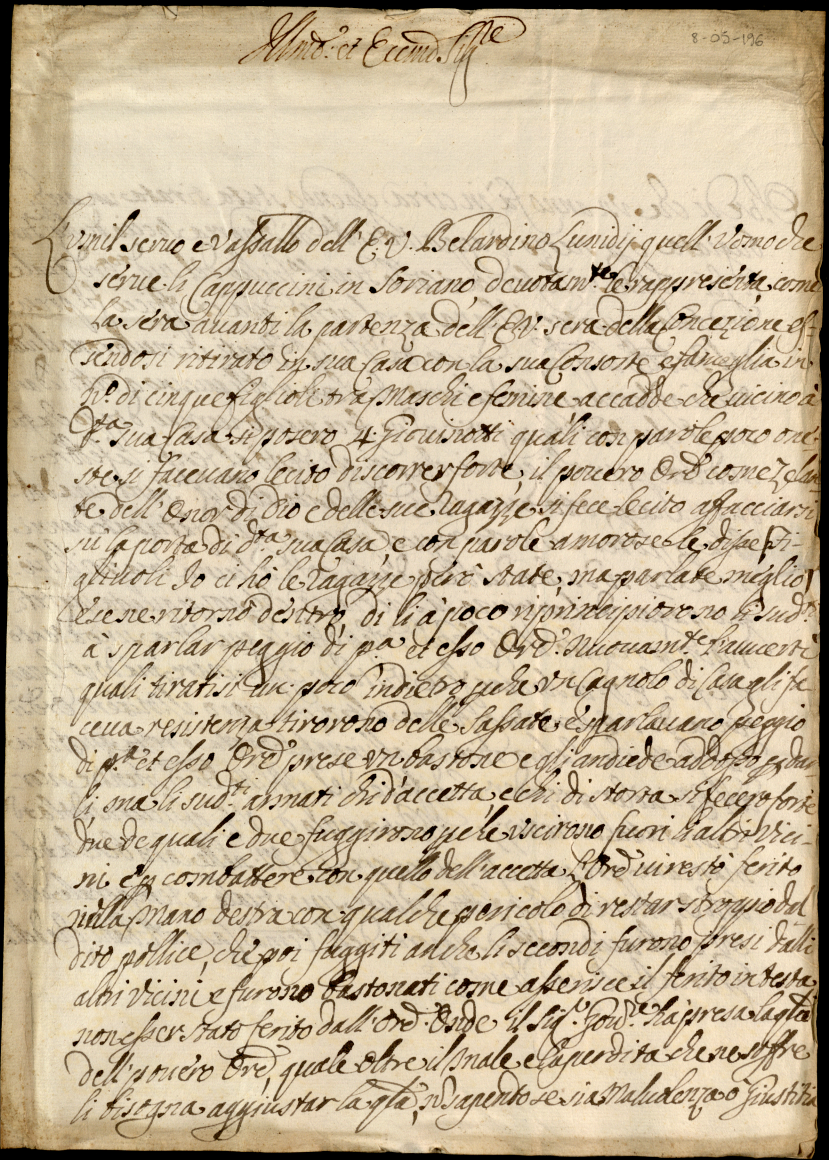 Illmo. et Eccmo. Sigre
8-05-196
L'umil servo e vassallo dell'E.V. Belardino Lunidij quell'uomo che
serve li Cappuccini in Soriano devotamte. le rappresenta come
la sera avanti la partenza dell'E.V. sera della Concezione es-
sendosi ritirato in sua Casa con la sua Consorte e fameglia in
no. di cinque figlioli tra Maschi e femine accadde che vicino à
da. sua Casa si posero 4 Giovinotti quali con parole poco one-
ste si facevano lecito discorrer forte, il povero Ore. come zelan
te dell'Onor di Dio e delle sue Ragazze si fece lecito affacciarsi
sù la porta di dta. sua Casa, e con parole amorose le disse, Fi-
gliuoli Io ci hò le Ragazze però state, ma parlate meglio
e se ne ritornò dentro, di lì à poco riprincipiorono li sudti.
à sparlar peggio di pa. et esso Ore. nuovamte. l'avvertì
quali tiratisi un poco indietro perche un Cagnolo di Casa gli fa
ceva resistenza tirorono delle sassate, e sparlavano peggio
di pa. et esso Ore. prese un bastone e gli andiede addosso per dar
li, ma li sudti. armati chi d'accetta, e chi di storta si fecero forti
due de quali e due fuggirono perche le uscirono fuori li altri vici-
ni e per combattere con quello dell'accetta l'Ore. vi restò ferito
nella Mano destra con qualche pericolo di restar stroppio dal
dito pollice, che poi fuggiti anche li secondi furono presi dalli
altri vicini e furono bastonati come asserisce il ferito in testa
non esser stato ferito dall'Ore. Onde il Sigr. Govre. hà presa la qla.
dell'povero Ore., quale oltre il male e la perdita che ne soffre
li bisogna aggiustar la qla., nò sapendo se sia Malvolenza ò Giustitia